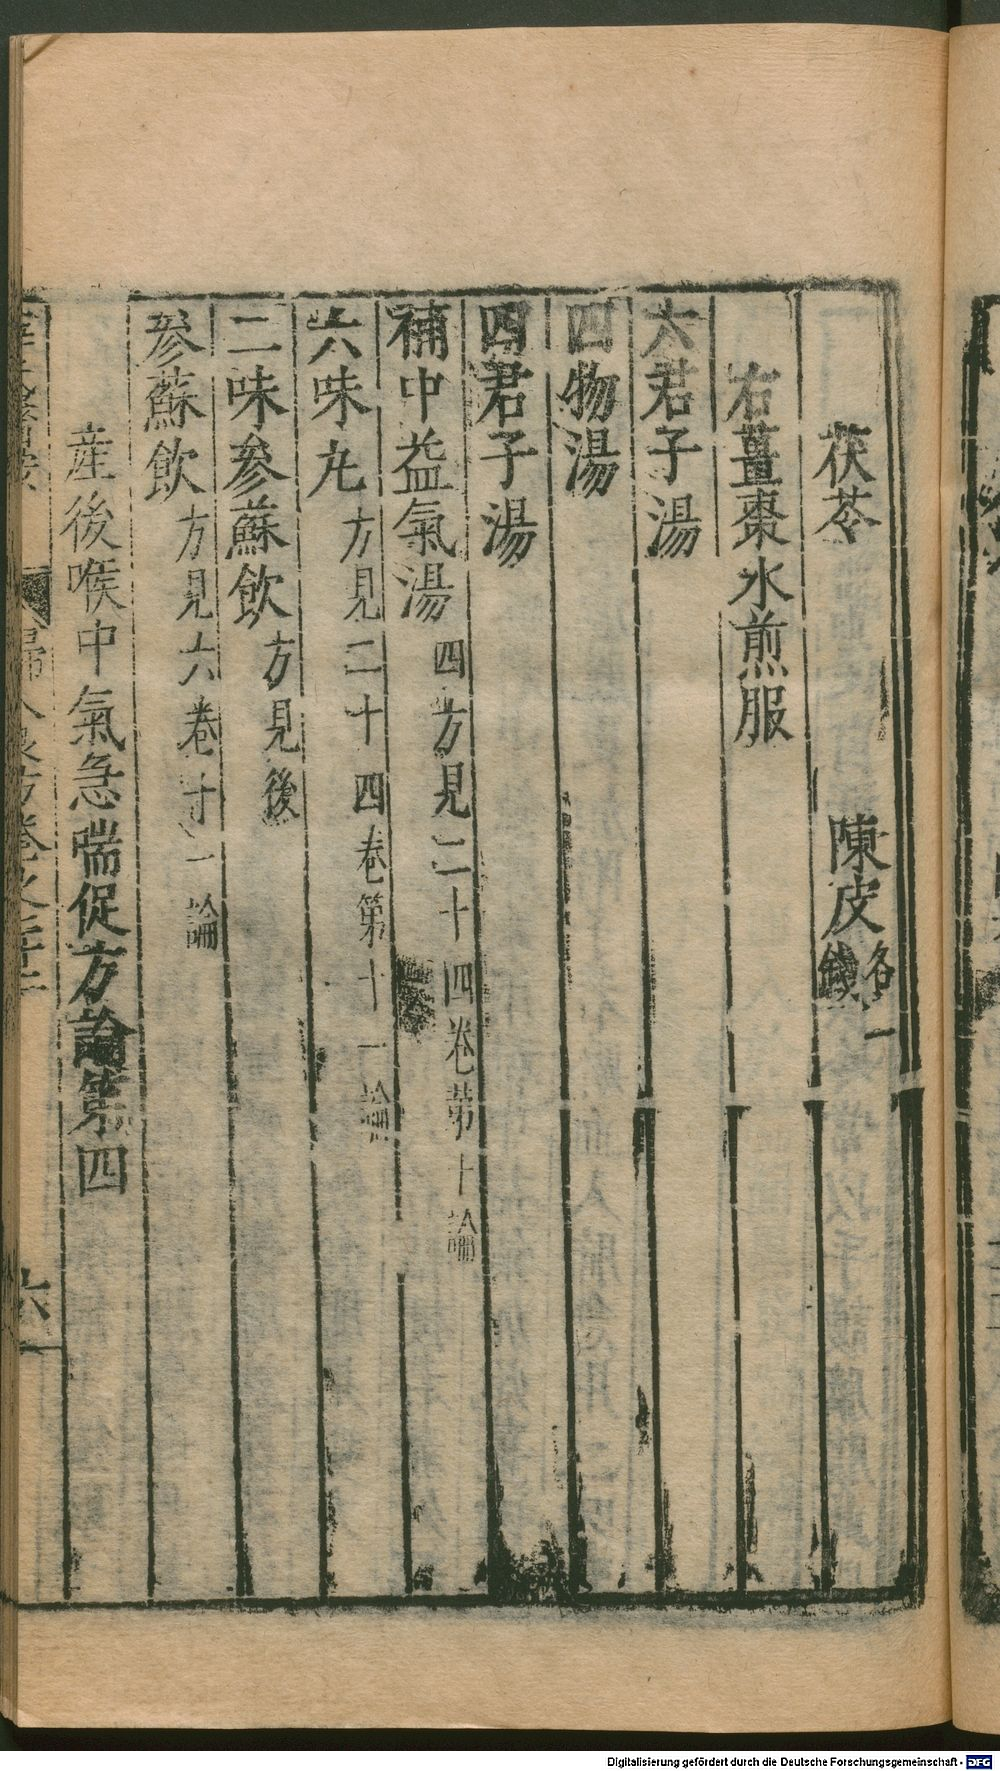 茯苓 陳皮各一錢
右薑棗水煎服
六君子湯
四物湯
四君子湯
補中益氣湯四方見二十四卷第十論
六味丸方見二十四卷第十一論
二味參蘇飲方見後
參蘇飲方見六卷十一論
産後喉中氣急喘促方論第四
婦人良方卷之二十二
六
Digitalisierung gefördert durch die Deutsche Forschungsgemeinschaft - DFG